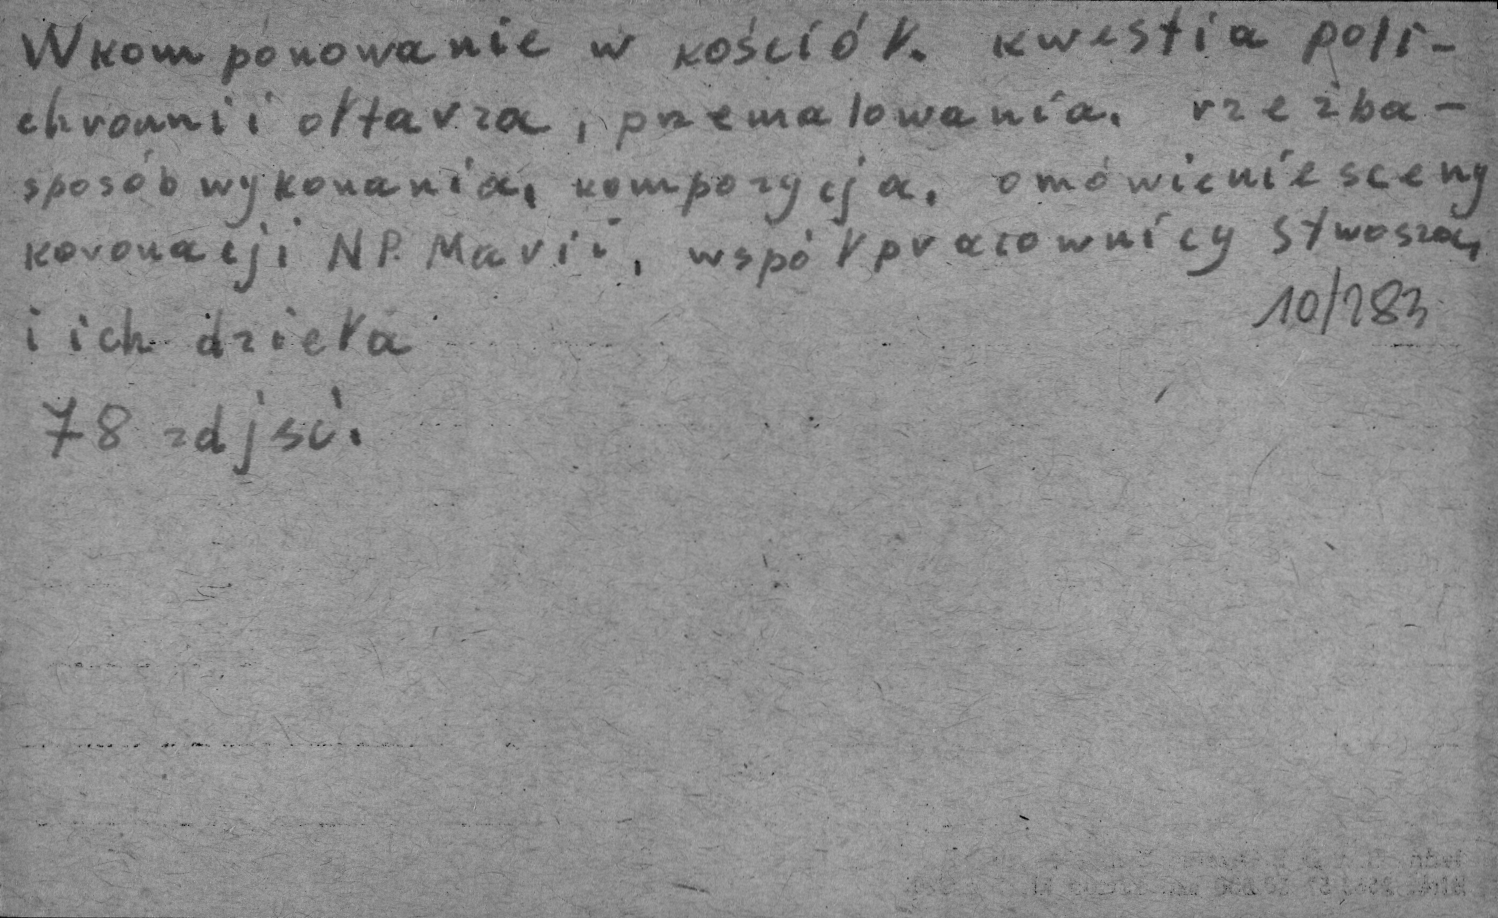 Wkomponowanie w kościół. kwestia poli-
chromii ołtarza, przemalowania. rzeźba -
sposób wykonania, kompozycja. omówienie sceny
koronacji NP. Marii, współpracownicy Stwosza,
i ich dzieła
10/283
78 zdjęć.